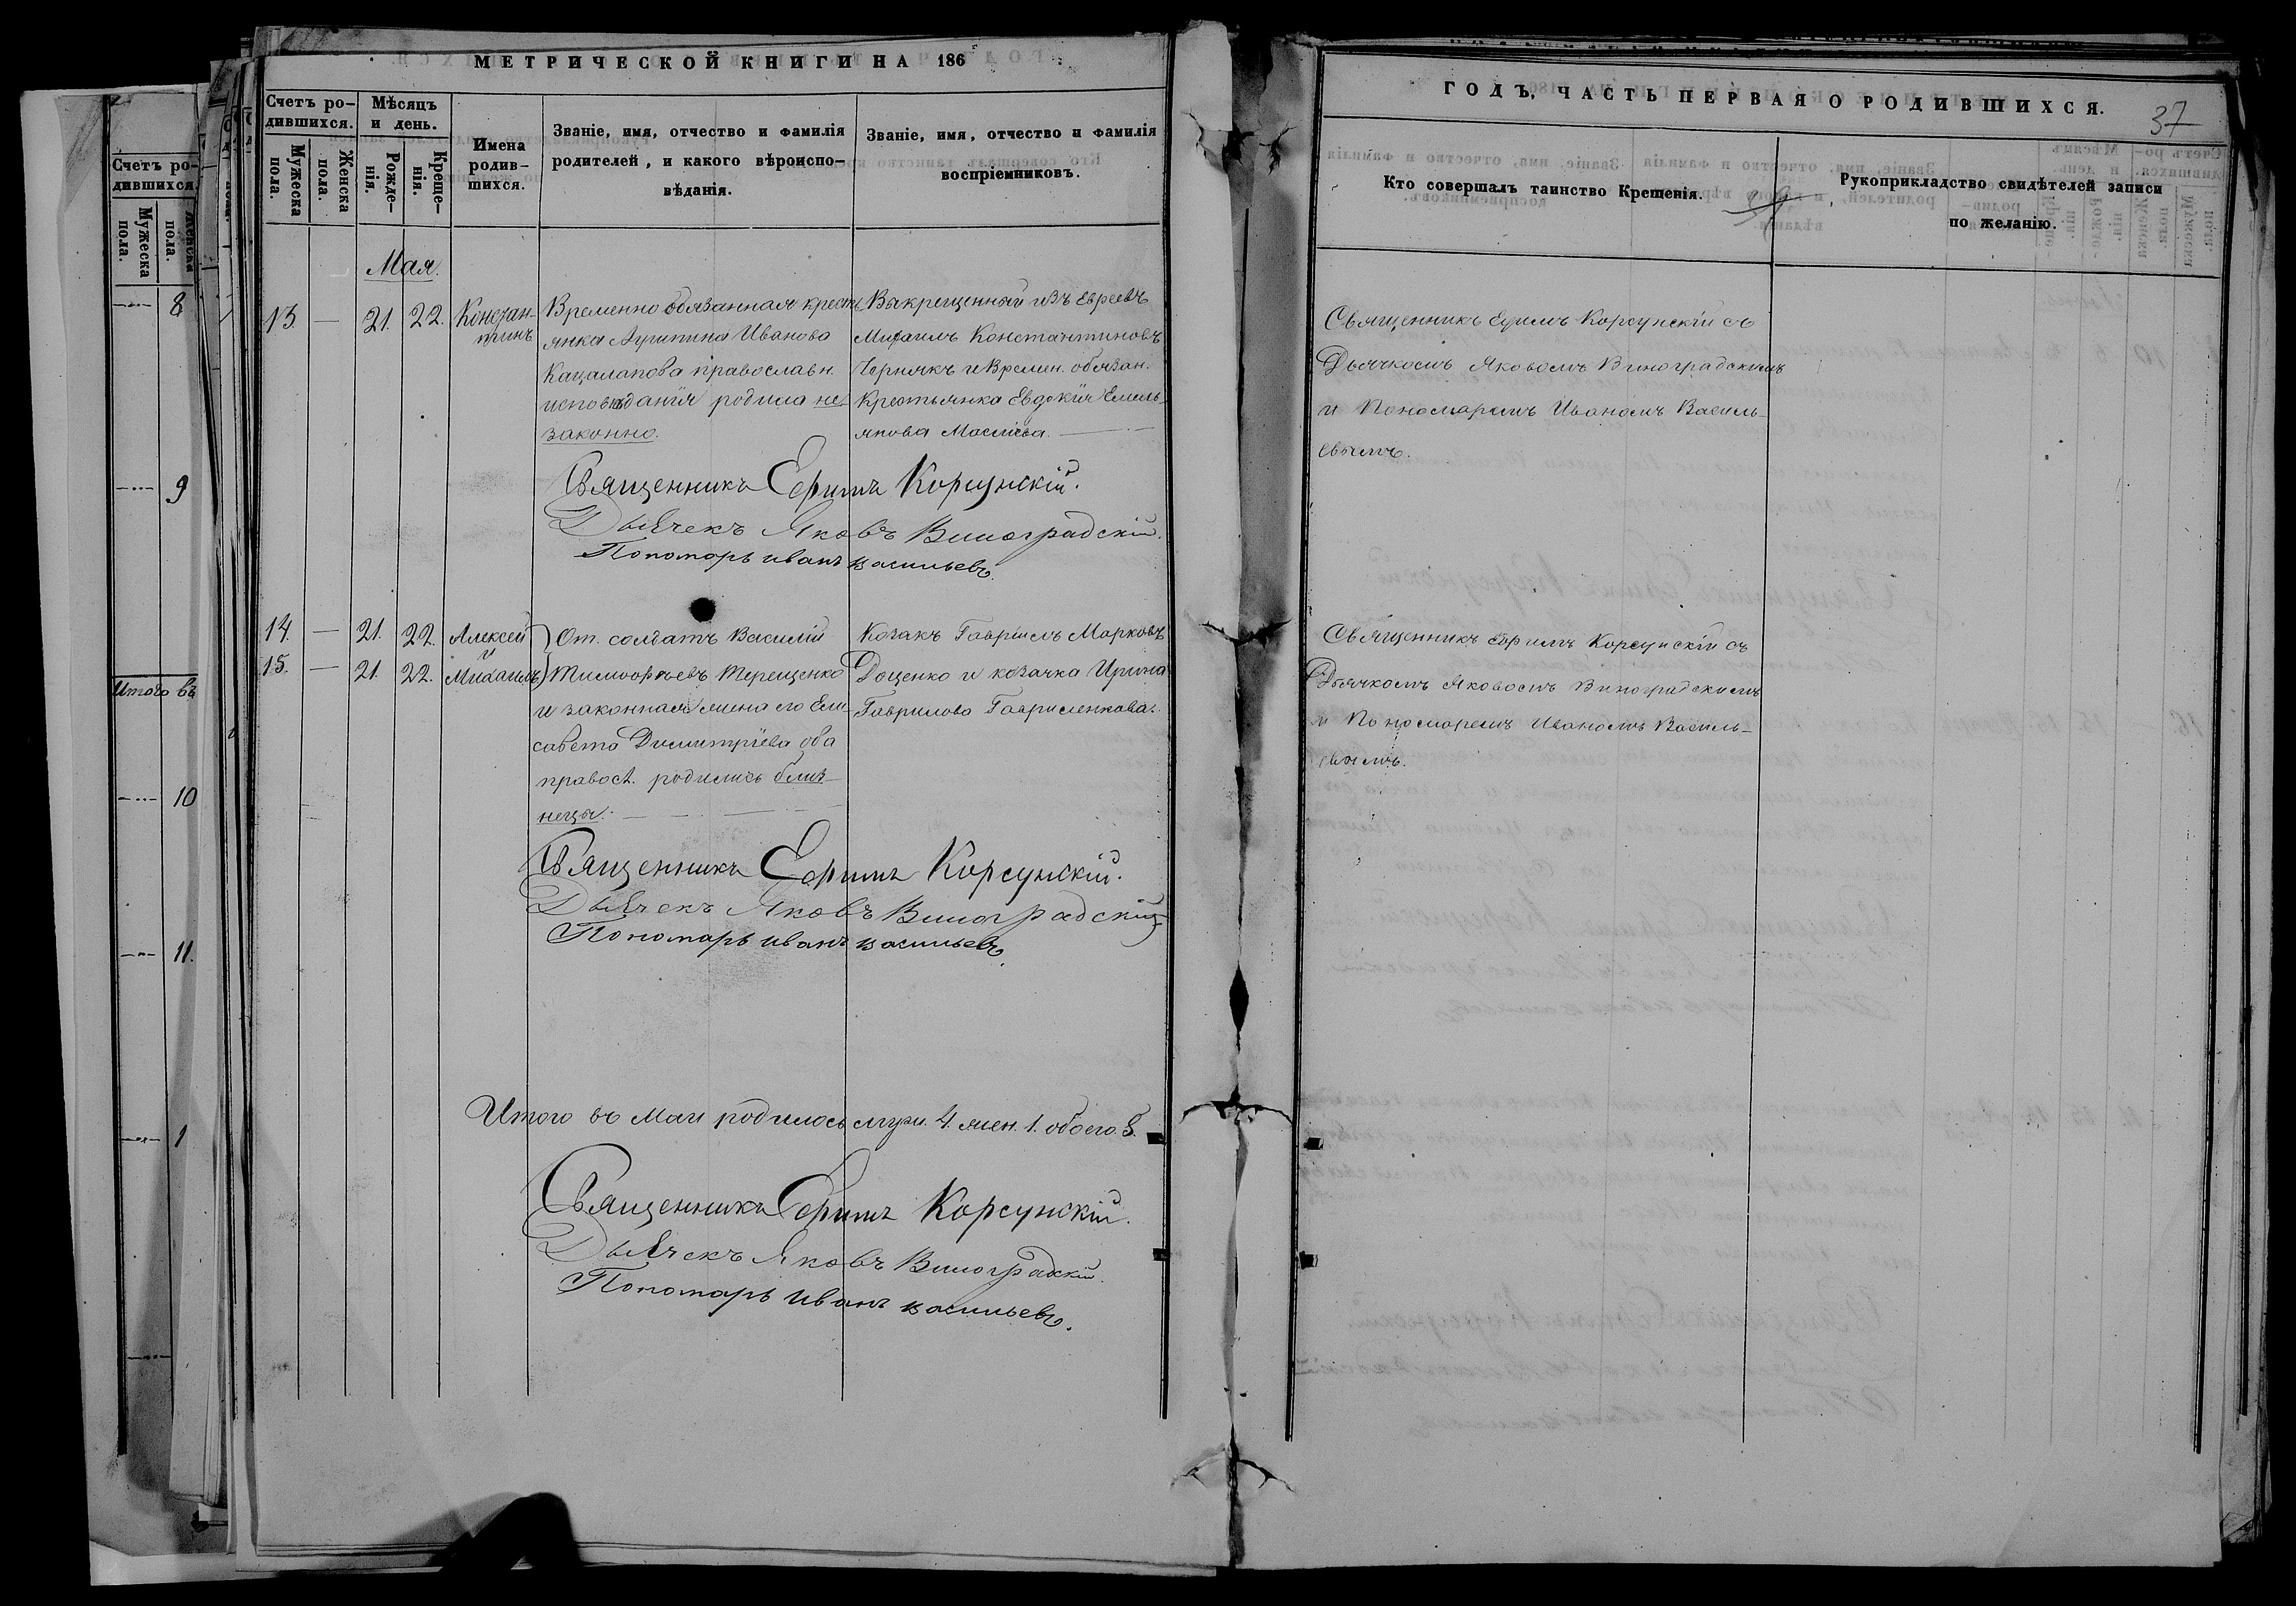 МЕТРИЧЕСКОЙ КНИГИ НА 186
Счетъ ро-
дившихся.
Мѣсяцъ
и день.
Мужеска
пола.
Женска
пола.
Рожде-
нія.
Креще-
нія.
Имена
родив-
шихся.
Званіе, имя, отчество и фамилія
родителей, и какого вѣроиспо-
вѣданія.
Званіе, имя, отчество и фамилія
воспріемниковъ.
Мая.
13. — 21. 22. Констан-
тинъ
Временно обязанная кресть
янка Агрипина Иванова
Кацалапова православн.
исповѣданія родила не
законно.
Выкрещенный изъ Евреевъ
Михаилъ Константиновъ
Чернякъ и Времен. обязан.
Крестьянка Евдокія Емель-
янова
Священникъ Ефимъ Корсунскій.
Дьячекъ Яковъ Виноградскій.
Пономарь иванъ васильевъ.
14. — 21. 22. Алексѣй
и
15. — 21. 22. Михаилъ
От. солдатъ Василій
Тимоофѣевъ Терещенко
и законная жена его Ели-
савета Димитріева оба
правосл. родились близ-
нецы.
Козакъ Гавріилъ Марковъ
Доценко и козачка Ирина
Гаврилова Гавриленкова.
Священникъ Ефимъ Корсунскій.
Дьячекъ Яковъ Виноградскій
Пономарь иванъ васильевъ.
Итого въ Маи родилось муж. 4. жен. 1. обоего. 5.
Священникъ Ефимъ Корсунскій.
Дьячекъ Яковъ Виноградскій.
Пономарь иванъ васильевъ.
ГОДЪ, ЧАСТЬ ПЕРВАЯ О РОДИВШИХСЯ.
37
Кто совершалъ таинство Крещенія.
Рукоприкладство свидѣтелей записи
по желанію.
Священникъ Ефимъ Корсунскій съ
Дьячкомъ Яковомъ Виноградскимъ
и Пономаремъ Иваномъ Василь-
евымъ.
Священникъ Ефимъ Корсунскій съ
Дьячкомъ Яковомъ Виноградскимъ
и Пономаремъ Иваномъ Василь-
евымъ.
Счетъ ро-
дившихся.
Мужеска
пола.
Женска
пола.
8
9
Итого въ
10
11.
1